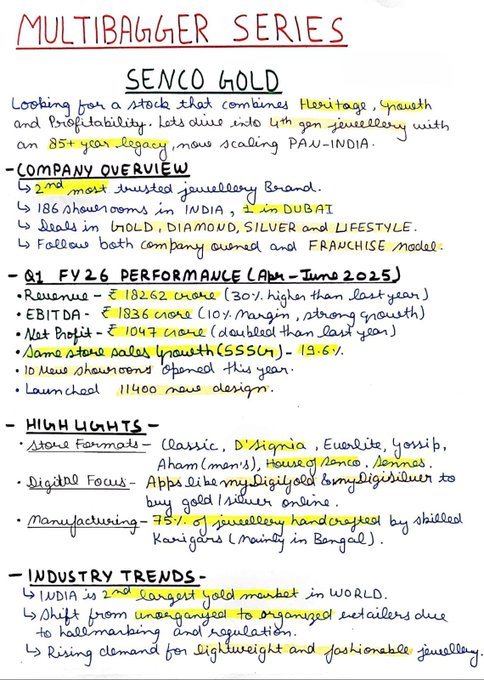 MULTIBAGGER SERIES
SENCO GOLD
Looking for a stock that combines Heritage, Growth
and Profitability. Lets dive into 4th gen jewellery with
an 85+ year legacy, now scaling PAN-INDIA.
- COMPANY OVERVIEW
↳ 2nd most trusted jewellery Brand.
↳ 186 showrooms in INDIA, 1 in DUBAI
↳ Deals in GOLD, DIAMOND, SILVER and LIFESTYLE.
↳ Follow both company owned and FRANCHISE model.
- Q1 FY26 PERFORMANCE (Apr - June 2025)
• Revenue - ₹ 18262 crore (30% higher than last year)
• EBITDA - ₹ 1836 crore (10% Margin, strong growth)
• Net Profit - ₹ 1047 crore (doubled than last year)
• Same store sales Growth (SSSG) - 19.6%
• 10 New showrooms opened this year.
• Launched 11400 new design.
- HIGHLIGHTS -
• Store Formats - Classic, D'Signia, Everlite, Gossip,
Aham (men's), House of Senco, Sennes.
• Digital Focus - Apps like myDigiGold & myDigiSilver to
buy gold/silver online.
• Manufacturing - 75% of jewellery handcrafted by skilled
Karigars (Mainly in Bengal).
- INDUSTRY TRENDS -
↳ INDIA is 2nd largest gold market in WORLD.
↳ Shift from unorganized to organized retailers due
to hallmarking and regulation.
↳ Rising demand for lightweight and fashionable jewellery.